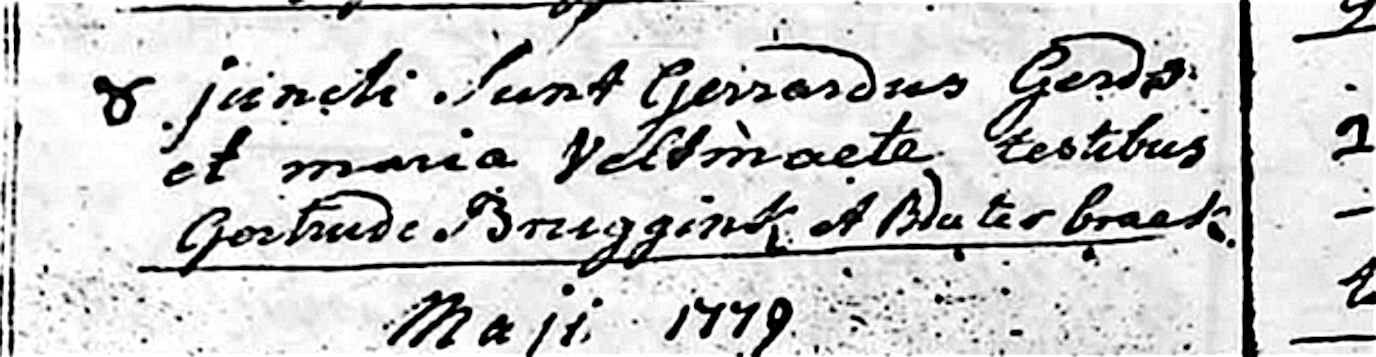 8 juncti sunt Gerrardus Gerds
et maria Veltmaete testibus
Gertrude Bruggink et B: Vaterbraek.
Maji 1779